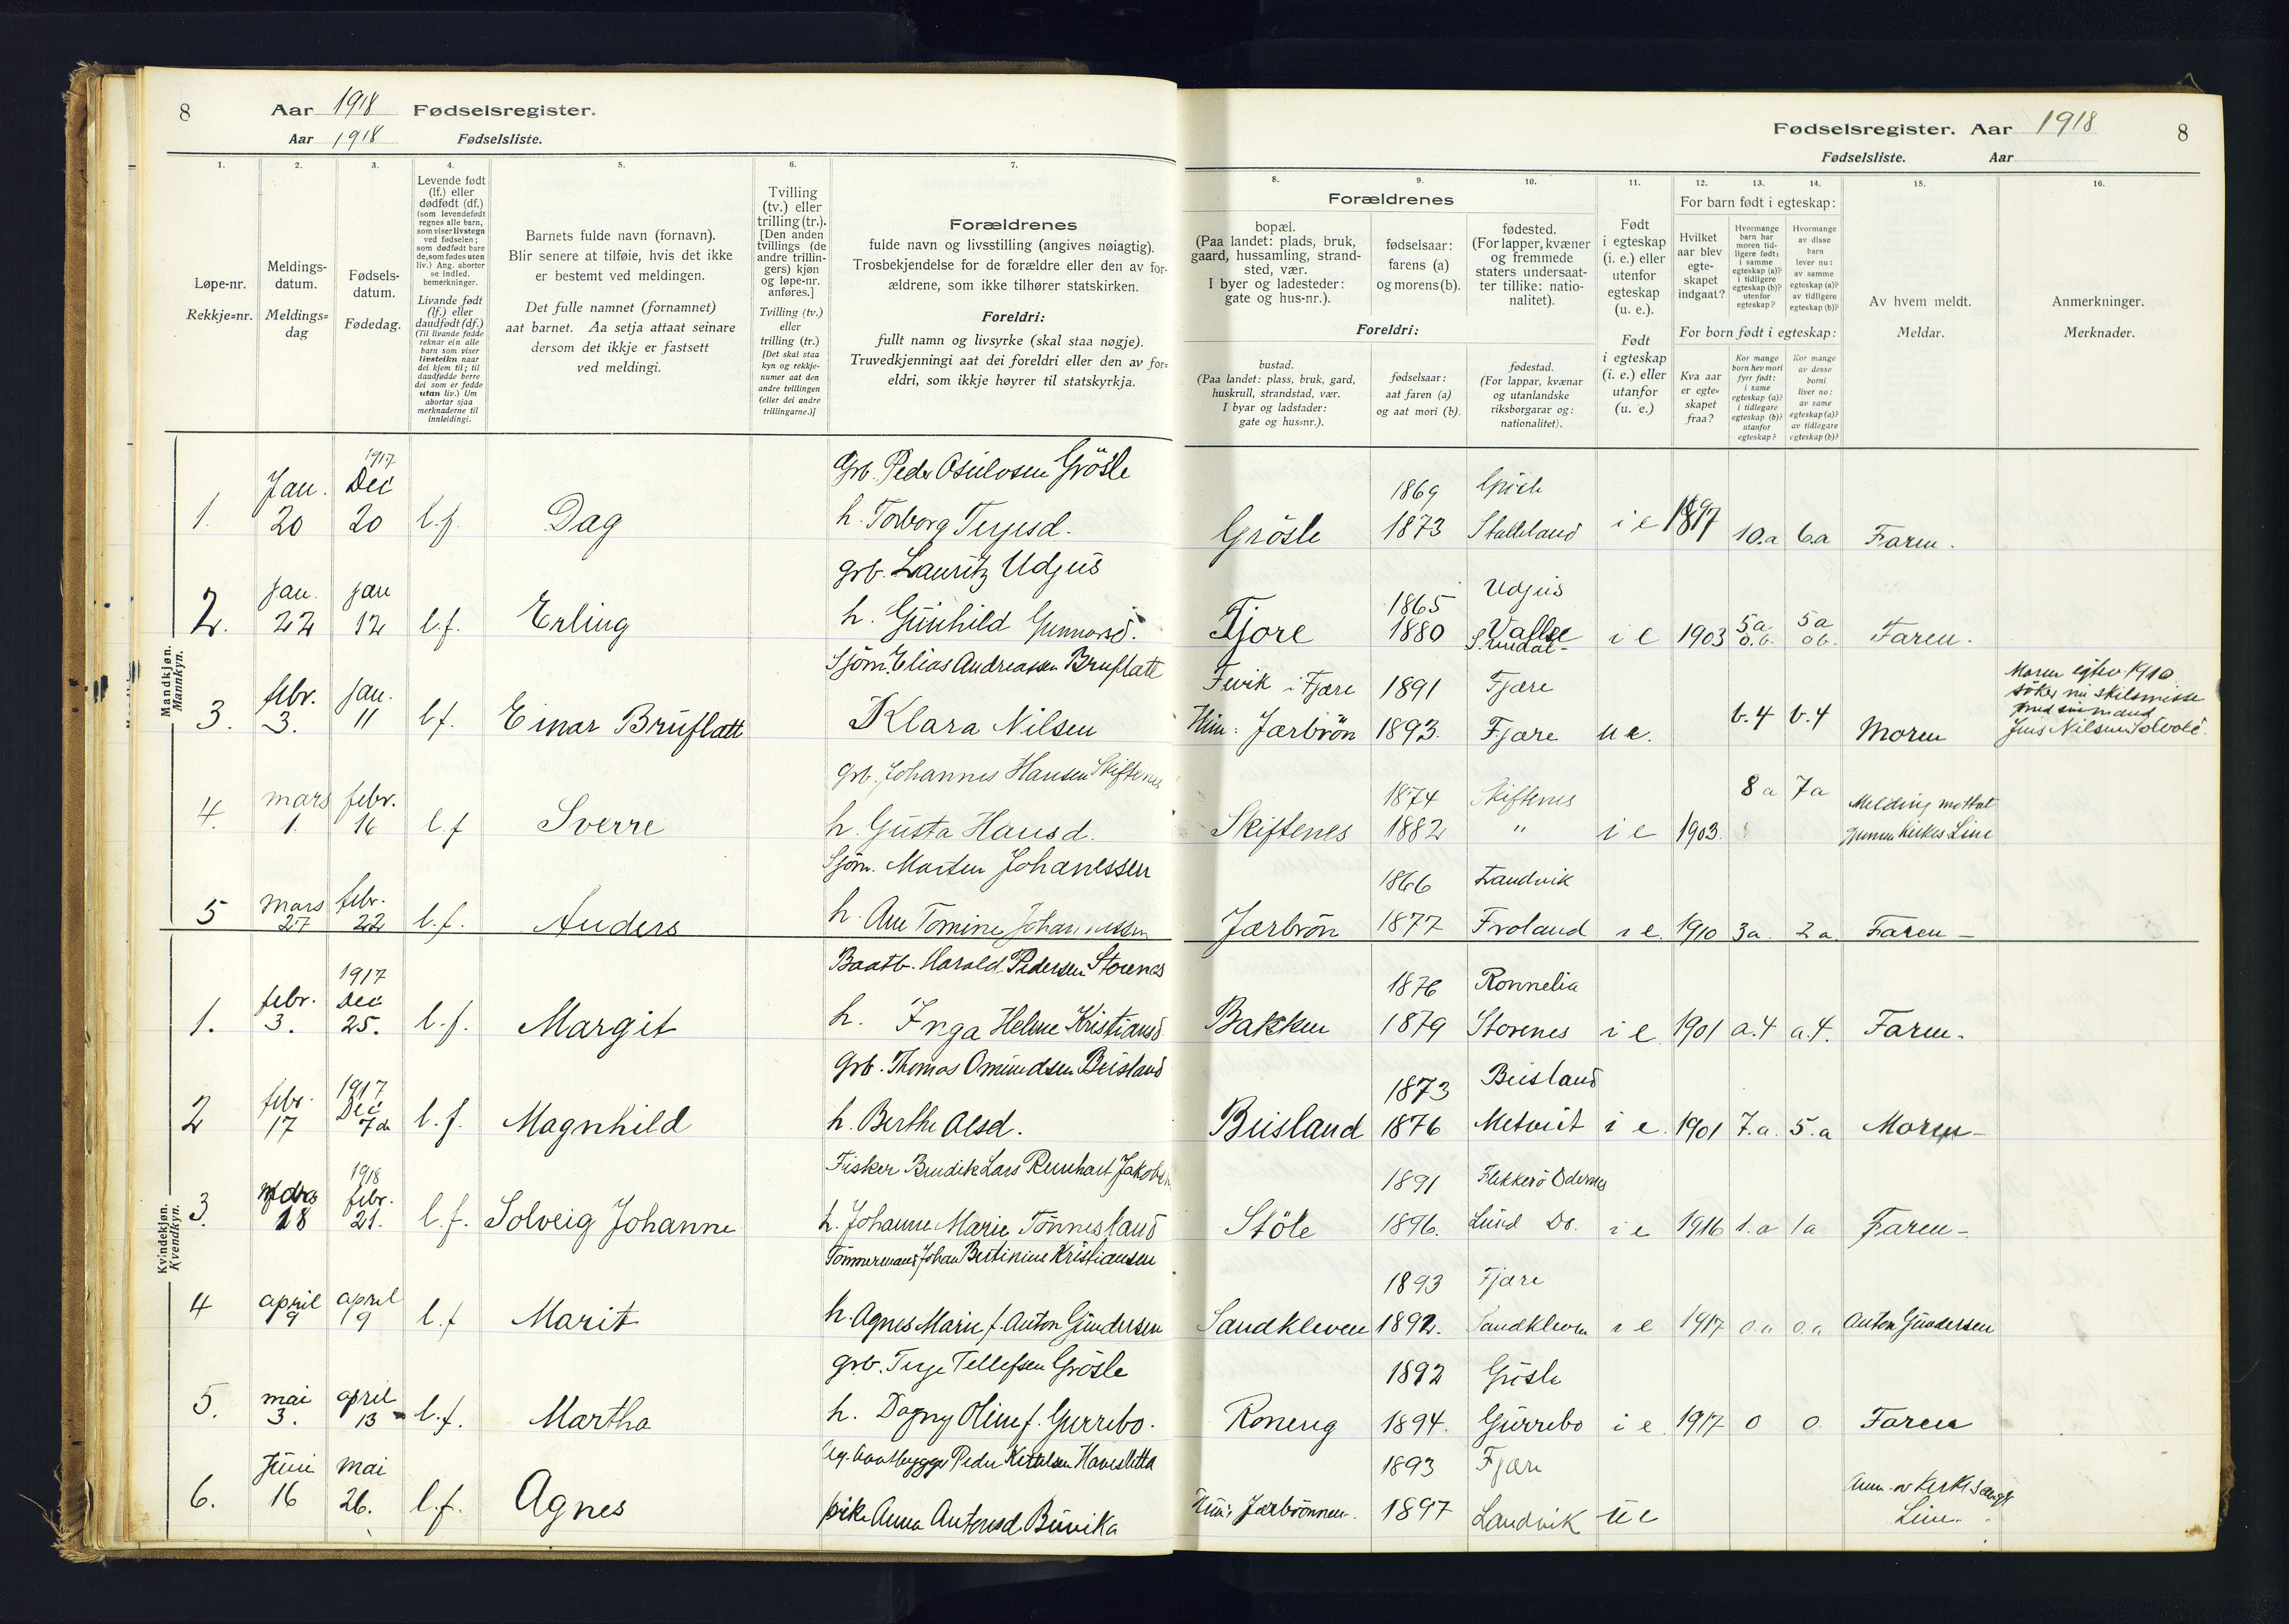 8 Aar 1918 Fødselsregister.
Aar 1918 Fødselsliste.
1. 2. 3. 4. 5. 6. 7.
Løpe-nr.
Rekkje=nr.
Meldings-
datum.
Meldings=
dag
Fødsels-
datum.
Fødedag.
Levende født
(lf.) eller
dødfødt (df.)
(som levendefødt
regnes alle barn,
som viser livstegn
ved fødselen;
som dødfødt bare
de, som fødes uten
liv.) Ang. aborter
se indled.
bemerkninger.
Livande født
(lf.) eller
daudfødt (df.)
(Til livande fødde
reknar ein alle
barn som viser
livsteikn naar
dei kjem til; til
daudfødde berre
dei som er fødde
utan liv.) Um
abortar sjaa
merknaderne til
innleidingi.
Barnets fulde navn (fornavn).
Blir senere at tilføie, hvis det ikke
er bestemt ved meldingen.
Det fulle namnet (fornamnet)
aat barnet. Aa setja attaat seinare
dersom det ikkje er fastsett
ved meldingi.
Tvilling
(tv.) eller
trilling (tr.).
[Den anden
tvillings (de
andre trillin-
gers) kjøn
og løpe-nr.
anføres.]
Tvilling (tv.)
eller
trilling (tr.)
[Det skal staa
kyn og rekkje-
numer aat den
andre tvillingen
(eller dei andre
trillingarne.)]
Forældrenes
fulde navn og livsstilling (angives nøiagtig).
Trosbekjendelse for de forældre eller den av for-
ældrene, som ikke tilhører statskirken.
Foreldri:
fullt namn og livsyrke (skal staa nøgje).
Truvedkjenningi aat dei foreldri eller den av for=
eldri, som ikkje høyrer til statskyrkja.
Fødselsregister. Aar 1918 8
Fødselsliste. Aar
8. 9. 10. 11. 12. 13. 14. 15. 16.
Forældrenes
bopæl.
(Paa landet: plads, bruk,
gaard, hussamling, strand-
sted, vær.
I byer og ladesteder:
gate og hus-nr.).
fødselsaar:
farens (a)
og morens (b).
fødested.
(For lapper, kvæner
og fremmede
staters undersaat-
ter tillike: natio-
nalitet).
Foreldri:
bustad.
(Paa landet: plass, bruk, gard,
huskrull, strandstad, vær.
I byar og ladstader:
gate og hus=nr.).
fødselsaar:
aat faren (a)
og aat mori (b).
fødestad.
(For lappar, kvænar
og utanlandske
riksborgarar og:
nationalitet).
Født
i egteskap
(i. e.) eller
utenfor
egteskap
(u. e.).
Født
i egteskap
(i. e.) eller
utanfor
(u. e.)
For barn født i egteskap:
Hvilket
aar blev
egte-
skapet
indgaat?
Hvormange
barn har
moren tid-
ligere født:
i samme
egteskap (a)?
i tidligere
egteskap (b)?
utenfor
egteskap?
Hvormange
av disse
barn
lever nu:
av samme
egteskap (a)?
av tidligere
egteskap (b)?
For born født i egteskap:
Kva aar
er egte=
skapet
fraa?
Kor mange
born hev mori
fyrr født:
i same
egteskap (a)?
i tidlegare
egteskap (b)?
utanfor
egteskap?
Kor mange
av desse
borni
liver no:
av same
egteskap (a)?
av tidlegare
egteskap (b)?
Av hvem meldt.
Meldar.
Anmerkninger.
Merknader.
Mandkjøn.
Mannkyn.
1. Jan. 20 1917 Dec 20 l.f. Dag Grb. Peder Osulvsen Grösle
h. Torborg Terjesd. Grösle 1869 1873 Stalleland i e 1897 10.a 6.a Faren.
2. Jan. 22 Jan 12 l.f. Erling Grb. Lauritz Udjus
h. Gunhild Gunnarsd. Fjore 1865 Udjus 1880 i e 1903 5a 0.b. 5a 0b. Faren.
3. febr. 3. Jan. 11 l.f. Einar Bruflatt Sjöm. Elias Andreassen Bruflatt
Klara Nilsen Fevik i Fjære 1891 Fjære
Hun: Jærbrön 1893. Fjære u e. b.4 b.4 Moren
Moren egtev. 1910
söker nu skilsmisse
med sin mand
Jens Nilsen
4. mars 1. febr. 16 l.f Sverre Grb. Johannes Hansen Skiftenes
h. Gusta Hansd. Skiftenes 1874 Skiftenes 1882 " i e 1903. 8a 7a Melding mottat
Line
5 mars 27 febr. 22 l.f. Anders Sjöm. Morten Johanessen
h. Ane Tomine Johannessen Jærbrön 1866 Landvik 1877 Froland i e. 1910 3a. 2a. Faren –
Kvindekjøn.
Kvendkyn.
1. febr. 3. 1917 Dec 25. l.f. Margit Baatb. Harald Pedersen Storenes
h. Inga Helene Kristiansd. Bakken 1876 Ronnelia 1879 Storenes i e 1901 a.4 a.4. Faren.
2 febr. 17 1917 Dec 7de l.f. Magnhild Grb. Thomas Omundsen Beisland
h. Berthe Alsd. Beisland 1873 Beisland 1876 i e. 1901 7.a. 5.a Moren –
3. mars 18 1918 febr. 21. l.f. Solveig Johanne Fisker Bendik Lars Renhart Jakobsen
h. Johanne Marie Tönnesland Stöle 1891 Flekkerö Oddernes 1896. Lund Do. i e 1916 1.a 1a Faren –
4 april 9 april 9 l.f Marit Tömmermand Johan Bertinius Kristiansen
h. Agnes Marie f. Anton Gundersen Sandkleven 1893 Fjære 1892. Sandkleven i e 1917 0.a 0.a Anton Gundersen
5. mai 3. april 13 l.f. Martha Grb. Terje Tellefsen Grösle
h. Dagny Oline f. Gurrebo. Ronerig 1892 Grösle 1894. Gurrebo i e. 1917 0 0. Faren
6. Juni 16 mai 26. l.f. Agnes Ug. baatbygger Peder Kittelsen Haveslätta
pike Anna Antonsd. Buvika Hun: Jærbrönnen. 1893 Fjære 1897 Landvik u e
Line.